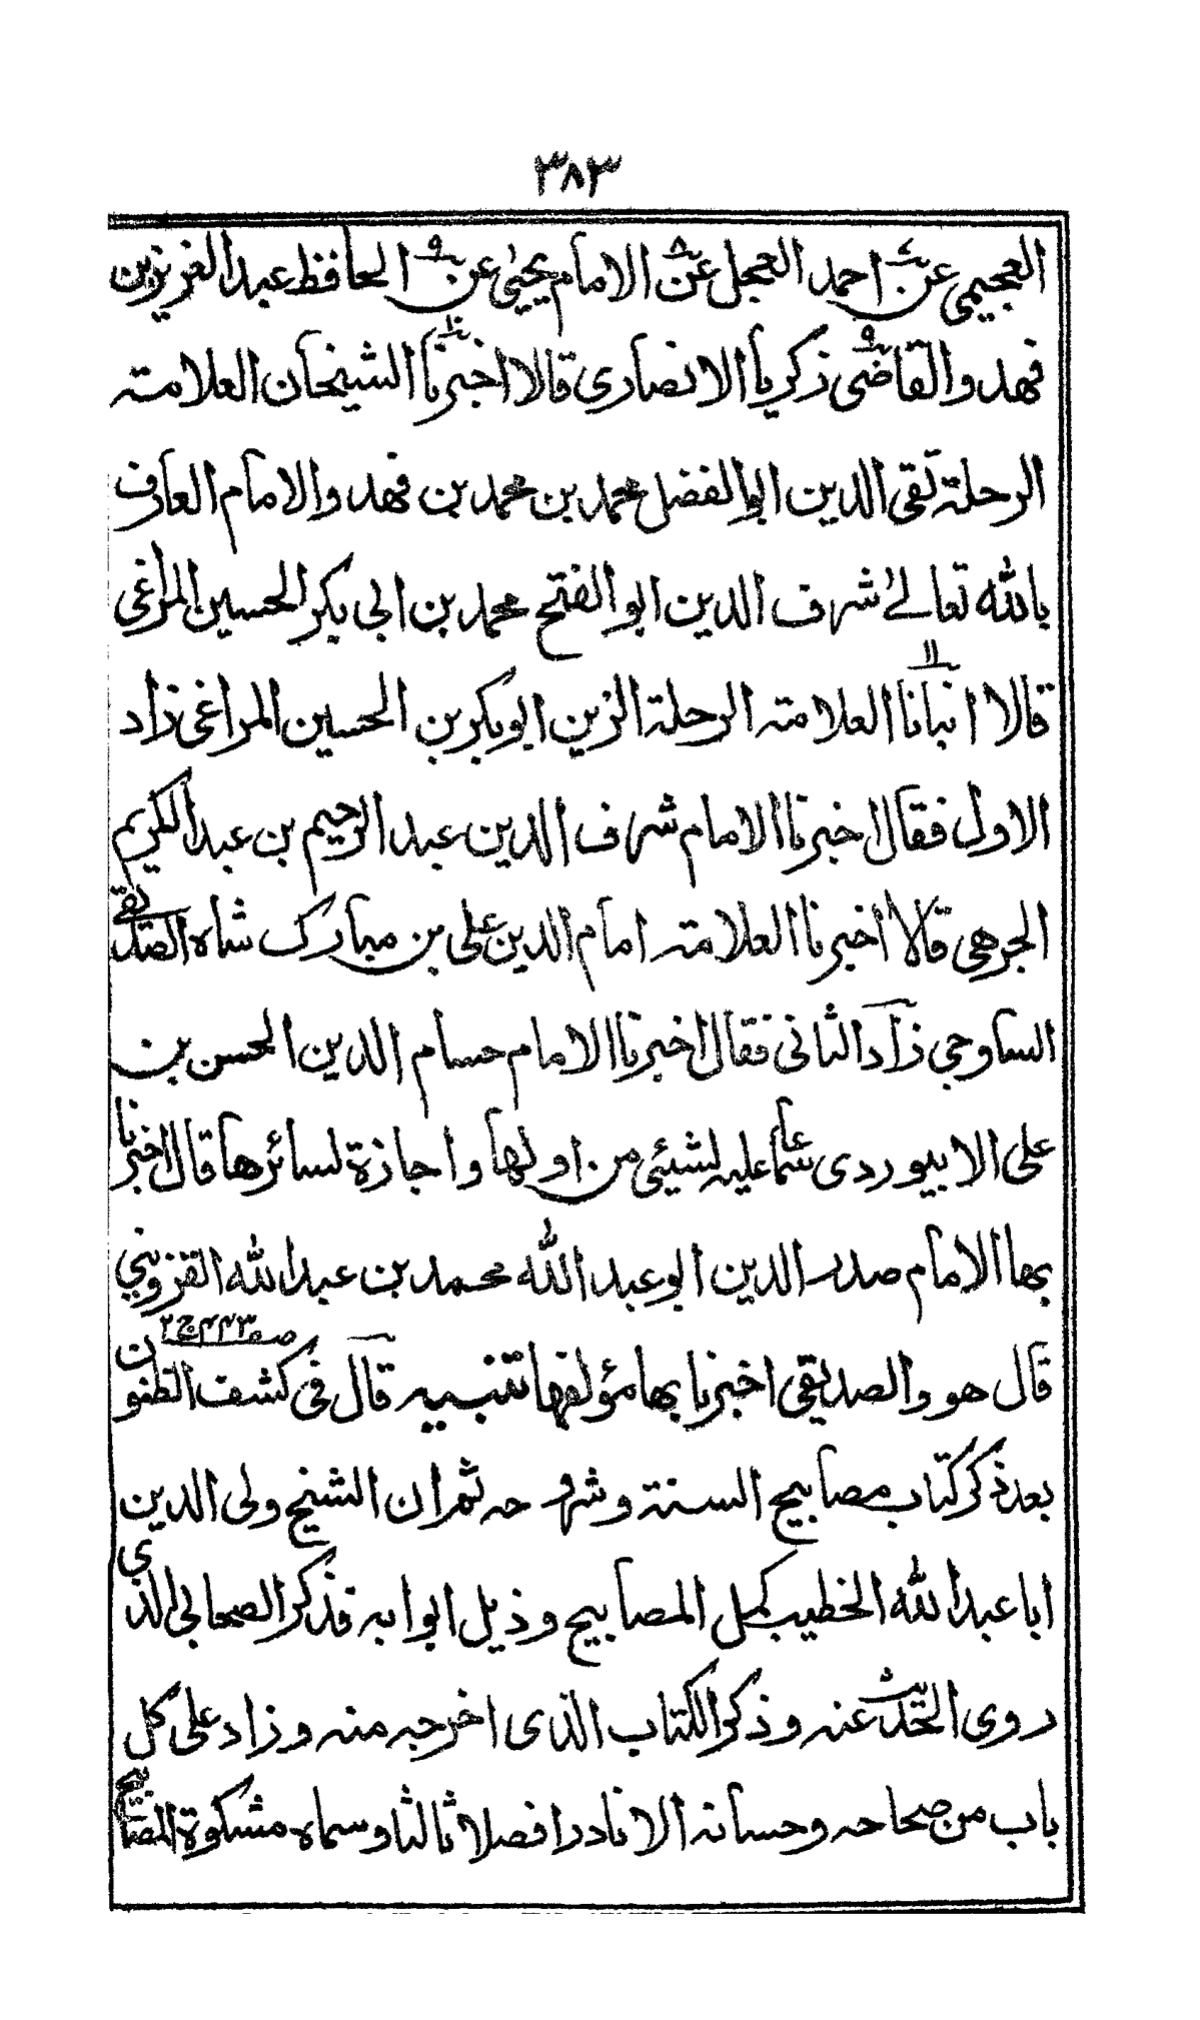 ٣٨٣
العجيمي عن احمد العجل عن الامام يحيى عن الحافظ عبد العزيز بن
فهد والقاضى زكريا الانصارى قالا اخبرنا الشيخان العلامة
الرحلة تقى الدين ابو الفضل محمد بن محمد بن فهد والامام العارف
بالله تعالى شرف الدين ابو الفتح محمد بن ابى بكر الحسين المراغى
قالا انبانا العلامة الرحلة الزين ابو بكر بن الحسين المراغى زاد
الاول فقال اخبرنا الامام شرف الدين عبد الرحيم بن عبد الكريم
الجرهى قالا اخبرنا العلامة امام الدين على بن مبارك شاه الصديقى
الساوجى زاد الثانى فقال اخبرنا الامام حسام الدين الحسن بن
على الابيوردى سماعا عليه لشيئى من اولها واجازة لسائرها قال اخبرنا
بها الامام صدر الدين ابو عبد الله محمد بن عبد الله القزوينى
قال هو والصديقى اخبرنا بها مؤلفها تنبيه قال فى كشف الظنون
بعد ذكر كتاب مصابيح السنة وشروحه ثم ان الشيخ ولى الدين
ابا عبد الله الخطيب كمل المصابيح وذيل ابوابه فذكر الصحابى الذى
روى الحديث عنه وذكر الكتاب الذى اخرجه منه وزاد على كل
باب من صحاحه وحسانه الا نادرا فصلا ثالثا وسماه مشكوة المصابيح